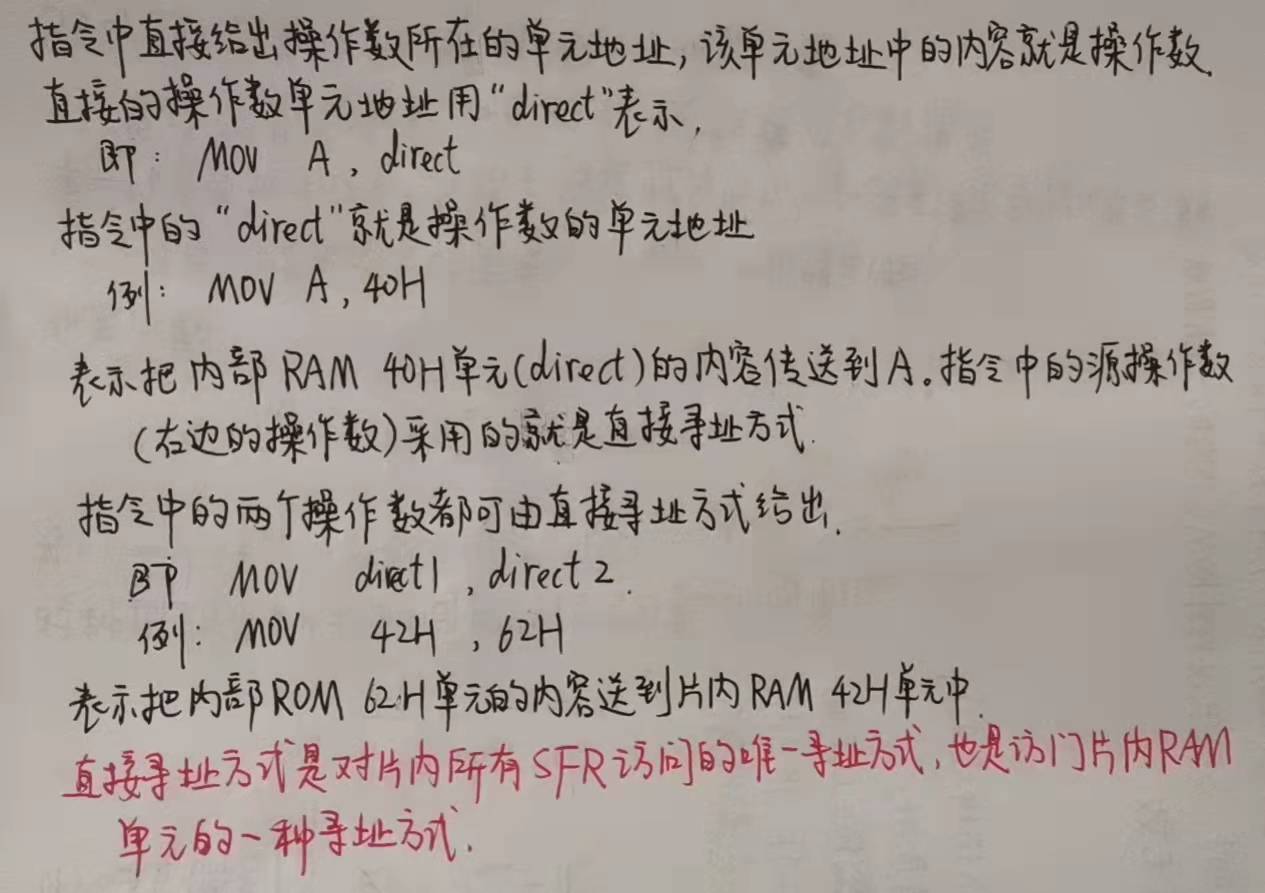 指令中直接给出操作数所在的单元地址,该单元地址中的内容就是操作数.
直接的操作数单元地址用“direct”表示,
即: MOV A, direct
指令中的“direct”就是操作数的单元地址
例: MOV A, 40H
表示把内部RAM 40H单元(direct)的内容传送到A。指令中的源操作数
(右边的操作数)采用的就是直接寻址方式.
指令中的两个操作数都可由直接寻址方式给出.
即 MOV direct1, direct2.
例: MOV 42H, 62H
表示把内部ROM 62H单元的内容送到片内RAM 42H单元中.
直接寻址方式是对片内所有SFR访问的唯一寻址方式,也是访门片内RAM
单元的一种寻址方式.